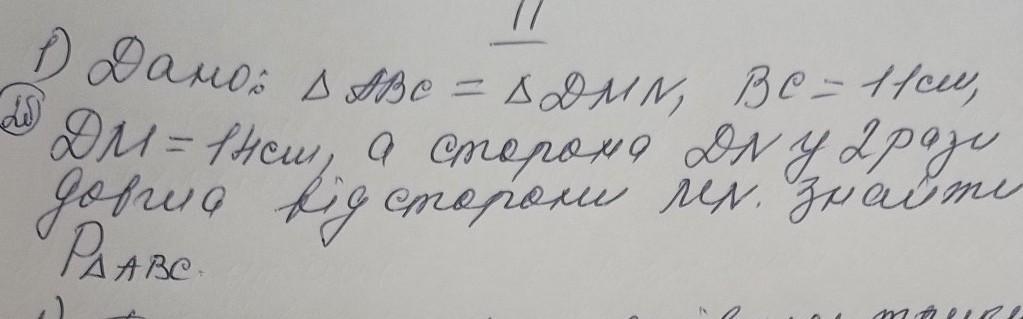 II
1) Дано: Δ ABC = Δ DMN, BC = 11см,
2б DM = 14см, а сторона DN у 2 рази
довша від сторони MN. Знайти
P Δ ABC.